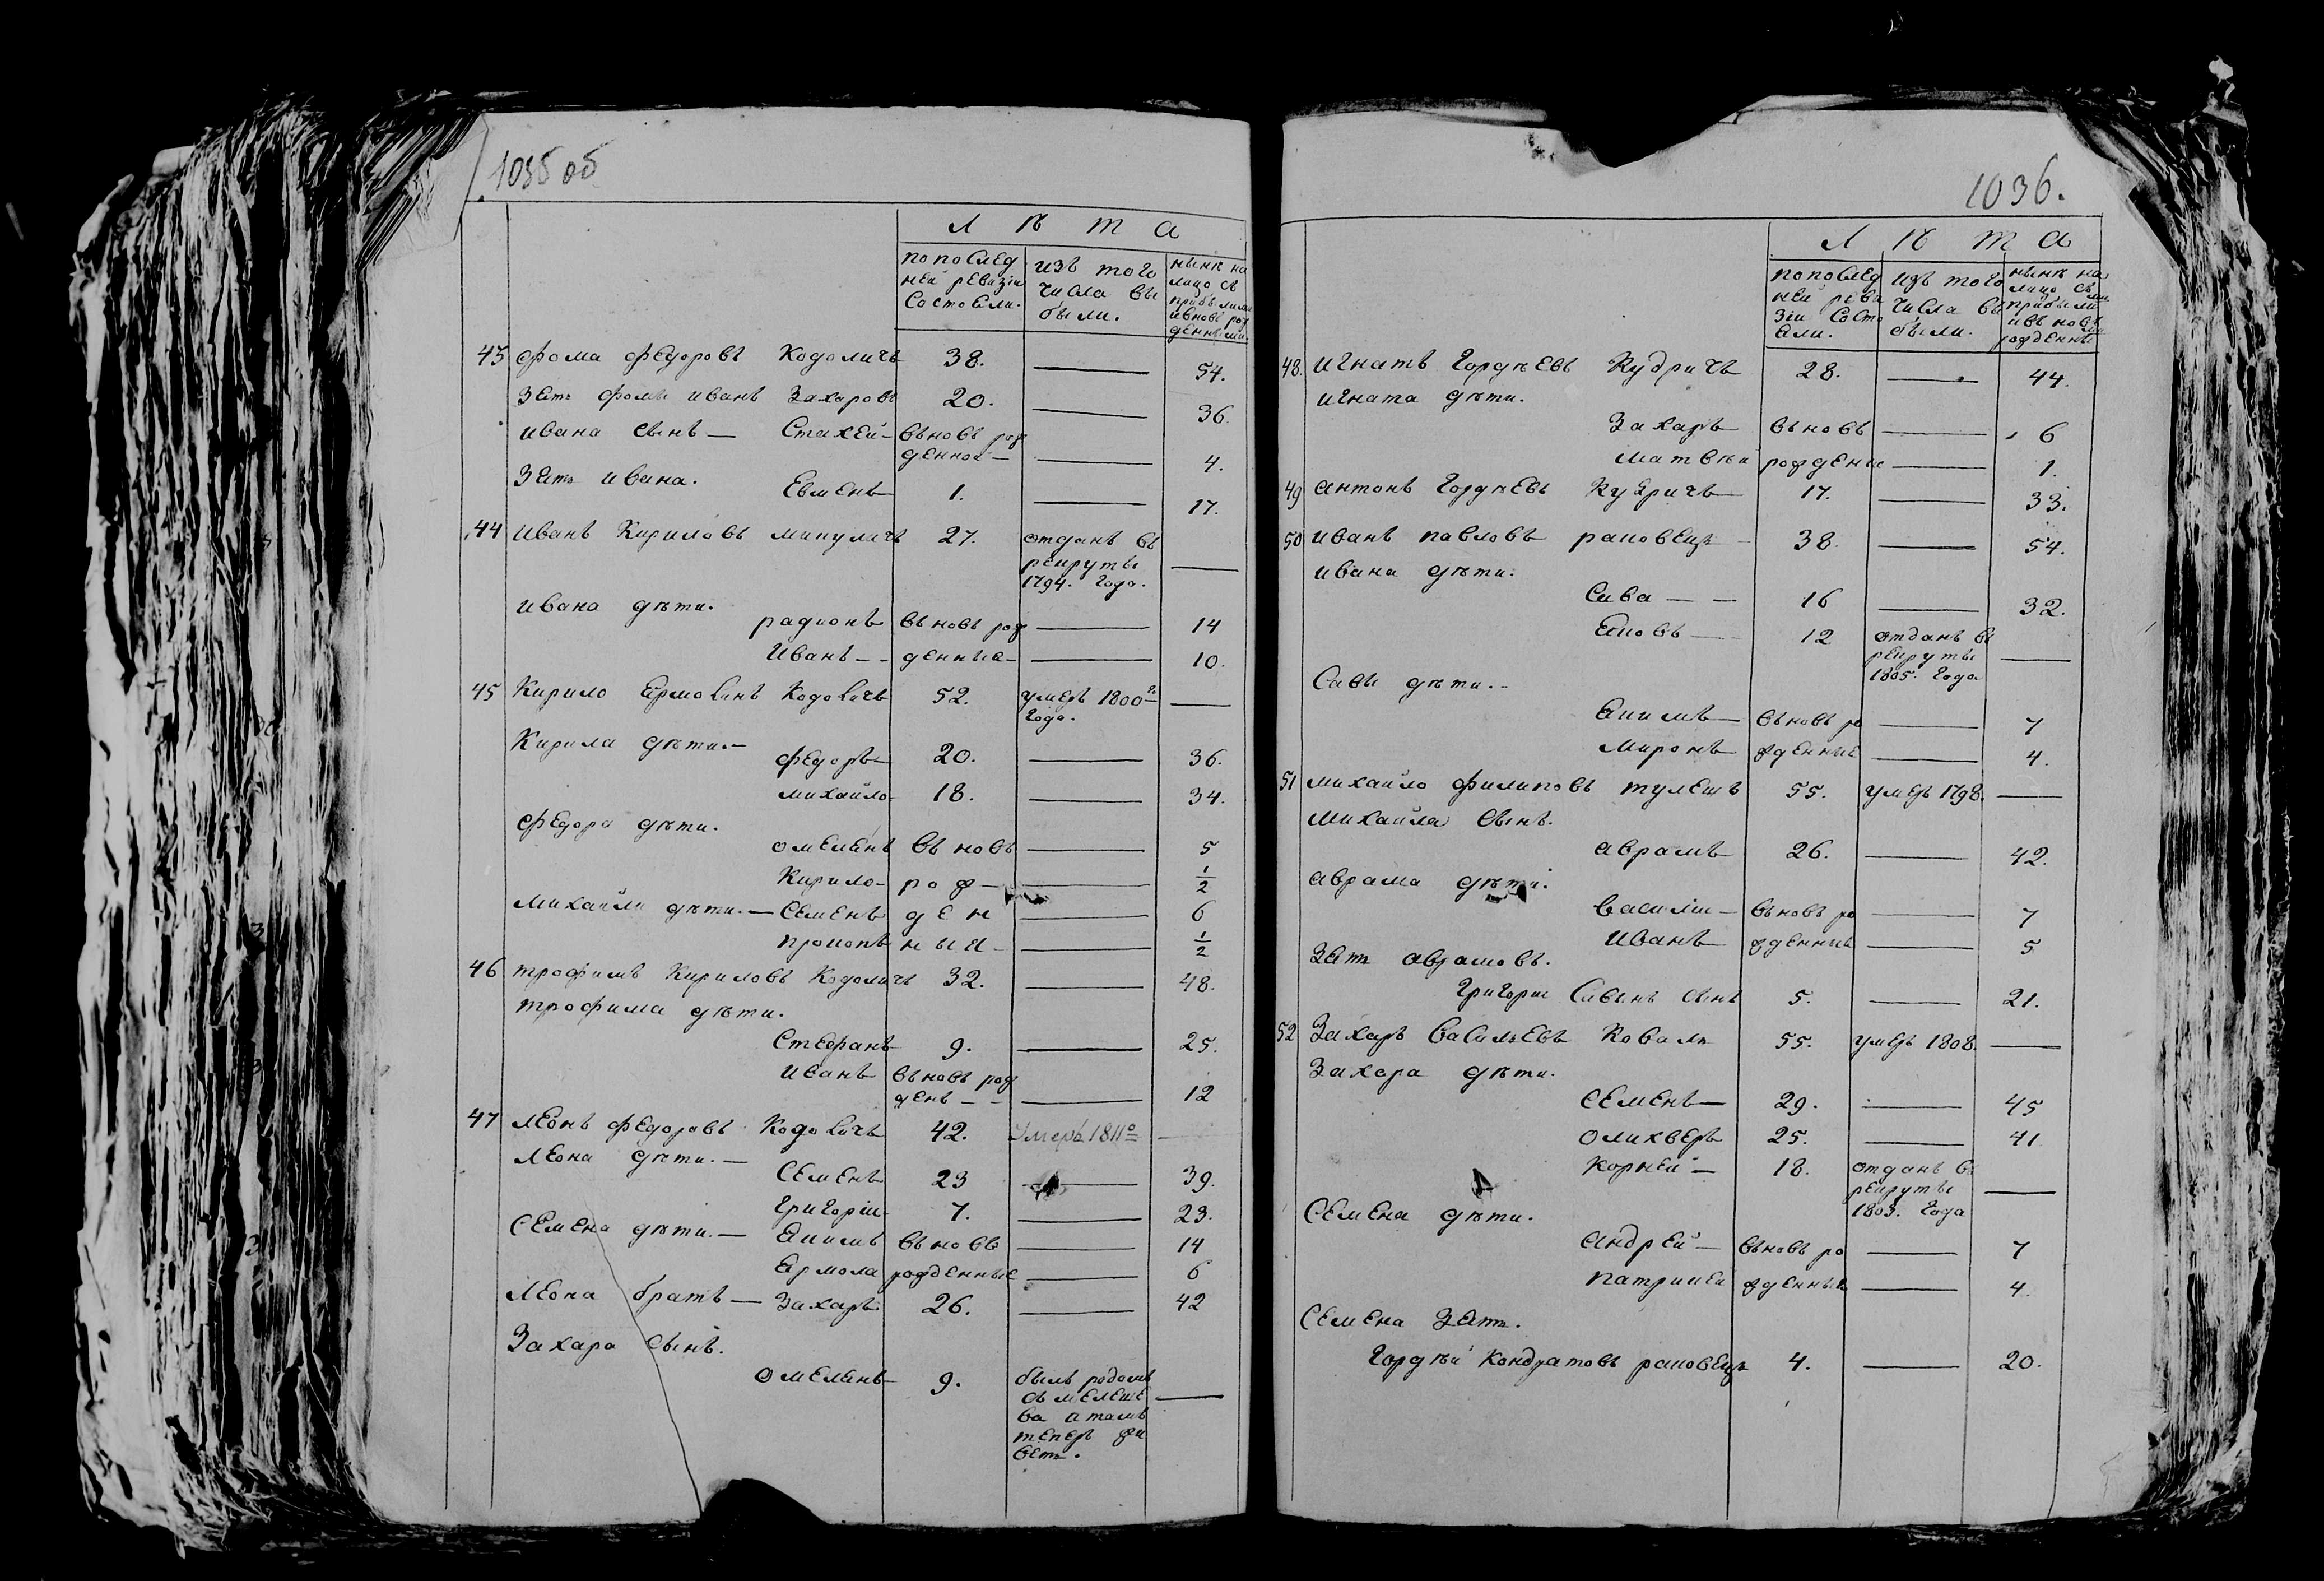 1035 об
Л Ѣ Т А
по послед ней ревизіи состояли. | изъ того числа вы были. | нынѣ на лицо съ прибылыми и вновь рожденными
43 Фома Федоровъ Кодоличъ 38. — 54.
Зять Фомы Иванъ Захаровъ 20. — 36.
Ивана сынъ — Стахей — вьновь рож денной — — 4.
Зять Ивана. Евменъ 1. — 17.
44 Иванъ Кириловъ Микуличъ 27. отданъ въ рекруты 1794. Года. —
Ивана дѣти.
Радионъ вьновь рож — 14
Иванъ — - денные — — 10.
45 Кирило Ермолинъ Кодоличъ 52. умеръ 1800го Года. —
Кирила дѣти. —
Федоръ 20. — 36.
Михайло 18. — 34.
Федора дѣти.
Омелянъ вь новь — 5
Кирило — рож — — 1/2
Михайли дѣти. — Семенъ ден — 6
Прокопъ ныи — — 1/2
46 Трофимъ Кириловъ Кодоличъ 32. — 48.
Трофима дѣти.
Стефанъ 9. — 25.
Иванъ вьновь рож день - - — 12
47 Леонъ Федоровъ Кодоличъ 42. Умеръ 1811о —
Леона дѣти. —
Семенъ 23 — 39.
Григорій 7. — 23.
Семена дѣти. — Якимъ вьновь — 14
Ярмола рожденные — 6
Леона братъ — Захаръ 26. — 42
Захара сынъ.
Омелянъ 9. былъ родомъ съ Мелеше ва атамъ теперь жи веть. —
1036.
Л Ѣ Т А
по послед ней реви зіи состо яли. | изъ того числа вы были. | нынѣ на лицо съ прибылыми и вьновь рожденны ми
48. Игнатъ Гордѣевъ Кудричъ 28. — 44.
Игната дѣти.
Захаръ вьновь — 6
Матвѣй рождены — 1.
49 Антонъ Гордѣевъ Кудричъ 17. — 33.
50 Иванъ Павловъ Раковецъ 38. — 54.
Ивана дѣти.
Сава — — 16 — 32.
Яковъ — 12 отданъ въ рекруты 1805. Года —
Савы дѣти. -
Якимъ — вьновь ро — 7
Миронъ жденные — 4.
51 Михайло Филиповъ Тулешъ 55. умеръ 1798. —
Михайла сынъ.
Аврамъ 26. — 42.
Аврама дѣти.
Василій — вьновь ро — 7
Иванъ жденные — 5
Зять Аврамовъ.
Григорій Савинъ сынъ 5. — 21.
52 Захаръ Васильевъ Коваль 55. умеръ 1808. —
Захара дѣти.
Семенъ — 29. — 45
Оликверъ 25. — 41
Корней — 18. отданъ въ рекруты 1803. Года —
Семена дѣти.
Андрей — вьновь ро — 7
Патрикей жденные — 4.
Семена зять.
Гордѣй Кондратовъ Раковецъ 4. — 20.